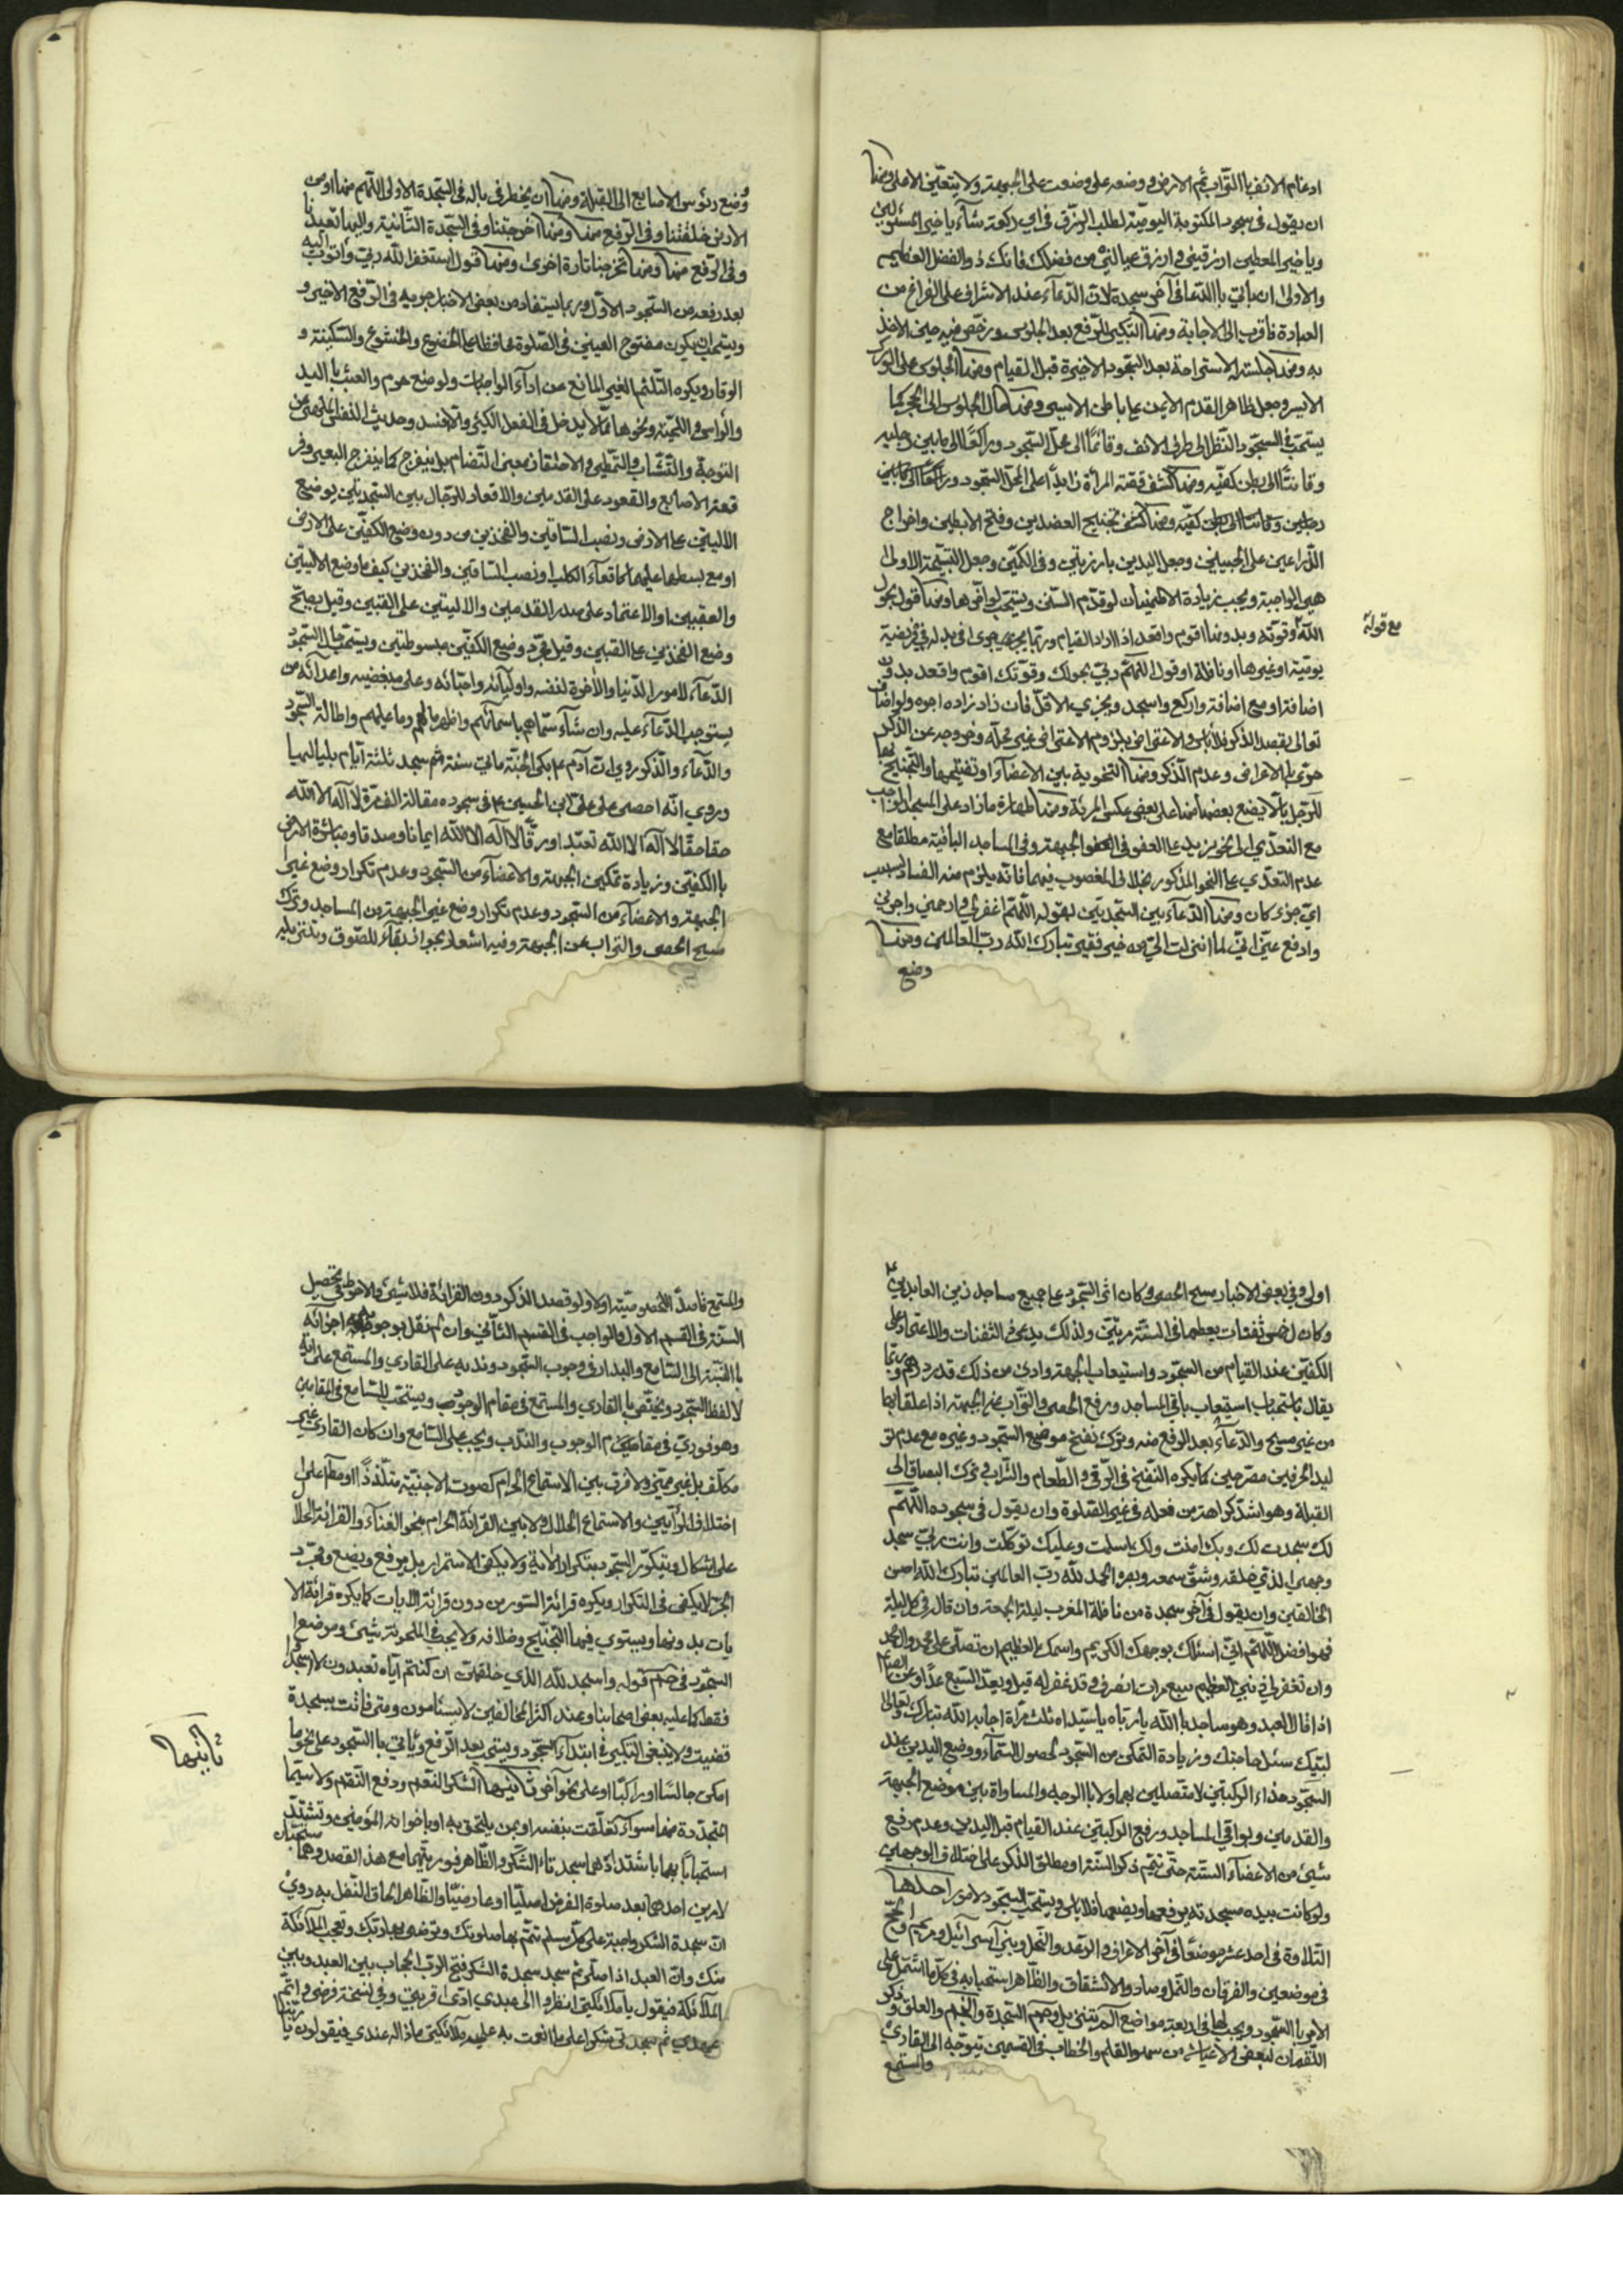 ادغام الانف بالتراب ثم الارض في وضعه على وضعت على الجبهة ولا يتعين الاعلى ومنها
ان يقول في سجود المكتوبة اليومية لطلب الرزق في اي ركعة شاء يا خير المسئولين
ويا خير المعطين ارزقني وارزق عيالي من فضلك فانك ذو الفضل العظيم
والاولى ان ياتي بالدعا في آخر سجدة لان الدعاء عند الاشراف على الفراغ من
العبادة فاقرب الى الاجابة ومنها التكبير للرفع بعد الجلوس ورخص فيه حين الاخذ
به ومنها جلسة الاستراحة بعد السجود الاخيرة قبل القيام ومنها الجلوس على الورك
الايسر وجعل ظاهر القدم الايمن على باطن الايسر ومنها حال الجلوس الى الحجر كما
يستحب في السجود النظر الى طرف الانف وقائما الى محل السجود وراكعا الى ما بين رجليه
وقانتا الى بطن كفيه ومنها كشف المرأة زايدا على المحل السجود وراكعا الى ما بين
رجلين وقانتا الى بطن كفيه ومنها تجنيح العضدين وفتح الابطين واخراج
الذراعين على الجبينين وجعل اليدين بارزتين وفي الكمين وجعل التسبيحة الاولى
هي الواجبة ويجب زيادة الاطمينان لو قدم السنن ويستحب لو اخرها ومنها قول بحول
الله وقوته وبدونها اقوم واقعد اذا اراد القيام وربما يجري مجرى في بدله في فريضة
مع قوله
يومية او غيرها او نافلة او قول اللهم ربي بحولك وقوتك اقوم واقعد بدون
اضافة او مع اضافة واركع واسجد ويجزي الاقل فان زاد زاده اجره ولو اضاف
تعالى بقصد الذكر فلا باس والاعتراض بلزوم الاعتراض في غير محله وخروجه عن الذكر
حري بالاعراض وعدم الذكر ومنها التخوية بين الاعضاء وتفتيحها والتجنيح بها
للرجل بان لا يضع بعضها منها على بعض عكس المرئة ومنها طهارة ما زاد على المسجد الواجب
مع التعدي او تجويز يدي على العفو في العفو الجبهة وفي المساجد الباقية مطلقا مع
عدم التعدي على النحو المذكور بخلاف المغصوب فيهما فانه يلزم منه الفساد بسبب
اي جزء كان ومنها الدعاء بين السجدتين بقوله اللهم اغفر لي وارحمني واجرني
وادفع عني اني لما انزلت الي من خير فقير تبارك الله رب العالمين ومنها
وضع
وضع رؤس الاصابع الى القبلة ومنها ان يخطر في باله في السجدة الاولى اللهم منها اي من
الارض خلقتنا وفي الرفع منها ومنها اخرجتنا وفي السجدة الثانية واليها تعيدنا
وفي الرفع منها ومنها تخرجنا تارة اخرى ومنها قول استغفر الله ربي واتوب اليه
بعد رفعه من السجود الاول وربما يستفاد من بعض الاخبار جريه في الرفع الاخير و
ويستحب ان يكون مفتوح العينين في الصلوة محافظا على الخضوع والخشوع والسكينة و
الوقار ويكره التلثم الغير المانع عن اداء الواجبات ولو منع حرم والعبث باليد
والراس واللحية ونحوها مما لا يدخل في الفعل الكثير والا فسد وحديث النفس الملهي عن
التوجه والتثاوب والتمطي والاحتقان بمعنى التضام بل ينفرج كما ينفرج البعير وفر
قعة الاصابع والقعود على القدمين والاقعاد للرجال بين السجدتين بوضع
الاليتين على الارض ونصب الساقين والفخذين من دون وضع الكفين على الارض
او مع بسطها عليها كاقعاء الكلب او نصب الساقين والفخذين كيف ما وضع الاليتين
والعقبين او الاعتماد على صدر القدمين والاليتين على العقبين وقيل بصح
وضع الفخذين على العقبين وقيل مجرد وضع الكفين مبسوطتين ويستحب حال السجود
الدعاء لامور الدنيا والآخرة لنفسه واوليائه واحبائه وعلى مبغضيه واعدائه من
يستوجب الدعاء عليه وان شاء سماهم باسمائهم واظهر ما لهم وما عليهم واطالة السجود
والدعاء والذكر وروي ان آدم ع بكى الجنة ماتي سنة ثم سجد ثلثة ايام بلياليها
وروي انه احصى على علي بن الحسين ع في سجوده مقالة الف مرة لا اله الا الله
حقا حقا لا اله الا الله تعبدا ورقا لا اله الا الله ايمانا وصدقا ومباشرة الارض
بالكفين وزيادة تمكين الجبهة والاعضاء من السجود وعدم تكرار وضع غير
الجبهة والاعضاء من السجود وعدم تكرار وضع غير الجبهة من المساجد وترك
مسح الحصى والتراب عن الجبهة وفيه اشعار بجواز بقاء للصوق وتنزيله
اولى وفي بعض الاخبار مسح الحصى وكان اثر السجود على جميع مساجد زين العابدين ع
وكان له خمس ثفنات يقطعها في السنة مرتين ولذلك يدعى ذي الثفنات والاعتماد على
الكفين عند القيام من السجود واستيعاب الجبهة وادنى من ذلك قدر درهم وربما
يقال باستحباب استيعاب باقي المساجد ورفع الحصى والتراب عن الجبهة اذا علقا بها
من غير مسح والدعاء بعد الرفع منه وترك نفخ موضع السجود وغيره مع عدم تو
ليد الحرفين مصرحين كما يكره النفخ في الرقى والطعام والشراب وترك البصاق الى
القبلة وهو اشد كراهة من فعله في غير الصلوة وان يقول في سجوده اللهم
لك سجدت لك وبك امنت ولك اسلمت وعليك توكلت وانت ربي سجد
وجهي للذي خلقه وشق سمعه وبصره الحمد لله رب العالمين تبارك الله احسن
الخالقين وان يقول في آخر سجدة من نافلة المغرب ليلة الجمعة وان قال في كل ليلة
فهو افضل اللهم اني اسئلك بوجهك الكريم واسمك العظيم ان تصلي على محمد وال محمد
وان تغفر لي ذنبي العظيم سبع مرات انصرف وقد غفر له قيل ويعد السبع عدا وعن الصادق ع
اذا قال العبد وهو ساجد يا الله يا رباه يا سيداه ثلث مرات اجابه الله تبارك وتعالى
لبيك سئل حاجتك وزيادة التمكن من السجود لحصول السيماء ووضع اليدين عند
السجود حذاء الركبتين لا متصلين بهما ولا بالوجه والمساواة بين موضع الجبهة
والقدمين وبواقي المساجد ورفع الركبتين عند القيام قبل اليدين وعدم رفع
شيئ من الاعضاء الستة حتى يتم ذكر السنة او مطلق الذكر على اختلاف الوجهين
ولو كانت بيده مسجدته يرفعها ويضعها فلا باس ويستحب السجود لامور احدها
التلاوة في احد عشر موضعا في آخر الاعراف والرعد والنحل وبني اسرائيل ومريم والحج
في موضعين والفرقان والنمل وصاد والانشقاق والظاهر استحبابه في كل ما اشتمل على
الامر بالسجود ويجب لها في اربعة مواضع الم تنزيل وحم السجدة والنجم والعلق وذكر
اللقمان لبعض الاعيان من سهو القلم والخطاب في القسمين يتوجه الى القاري
والمستمع
والمستمع قاصدا لخصوصيته او لا ولو قصد الذكر دون القرائة فلا شيئ والاحوط تحصيل
السنة في القسم الاول والواجب في القسم الثاني وان لم نقل بوجوبه اجزائه
بالنسبة الى السامع والمدار في وجوب السجود وندبه على القاري والمستمع على اية
لا لفظ السجود ويختص بالقاري والمستمع في مقام الوجوب ويستحب للسامع في المقامين
وهو فوري في مقامي الوجوب والندب ويجب على السامع وان كان القاري غير
مكلف بل غير مميز ولا فرق بين الاستماع الحرام كصوت الاجنبية متلذذا او مطلقا على
اختلاف الرأيين والاستماع الحلال ولا بين القرائة الحرام بنحو الغناء والقرائة الحلال
على اشكال ويتكرر السجود بتكرار الاية ولا يكفي الاستمرار بل يرفع ويضع ومجرد
الجر لا يكفي في التكرار ويكره قرائة السور من دون قرائة الايات كما يكره قرائة الا
يات بدونها ويستوي فيها التجنيح وخلافه ولا يجب في الملحونة شيئ وموضع
السجود في حم قوله واسجد لله الذي خلقهن ان كنتم اياه تعبدون لا اسجد
فقط كما عليه بعض اصحابنا وعند اكثر المخالفين لا يستامون ومتى فاتت سجدة
قضيت ولا ينبغي التكبير في ابتداء السجود ويستحب بعد الرفع وياتي بالسجود على نحو ما
امكن جالسا او راكبا او على نحو آخر ثانيها الشكر للنعم ودفع النقم ولا سيما
ثانيها
المتجددة منها سواء تعلقت بنفسه او بمن يلتحق به او باخوانه المؤمنين وتشتد
استحبابا بها باشتدادها سجدتا الشكر والظاهر فوريتهما مع هذا القصد وهما سجدتان
لامرين احدهما بعد صلوة الفرض اصليا او عارضيا والظاهر الحاق النفل به روي
ان سجدة الشكر واجبة على كل مسلم تتم بها صلوتك وترضي بها ربك وتعجب الملائكة
منك وان العبد اذا صلى ثم سجد سجدة الشكر فتح الرب الحجاب بين العبد وبين
الملائكة فيقول يا ملائكتي انظروا الى عبدي ادى قربتي وفي نسخة فرضي واتم
عهدي ثم سجد لي شكرا على ما انعمت به عليه ملائكتي ماذا له عندي فيقولون يا ربنا